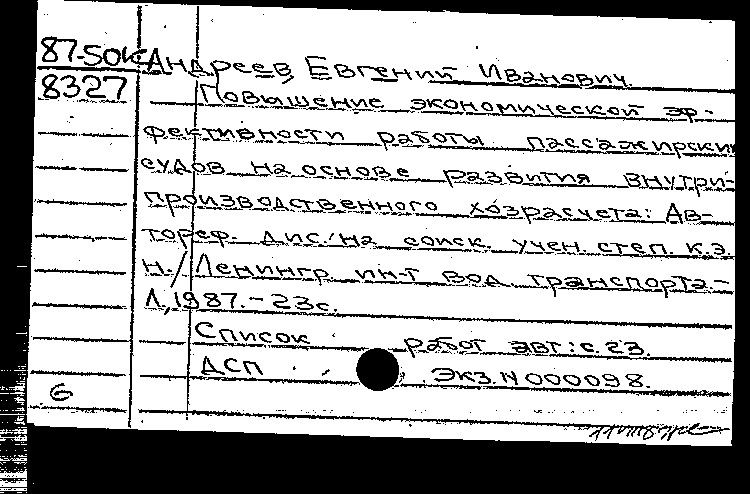 87-50к Андреев, Евгений Иванович
8327
Повышение экономической эф-
фективности работы пассажирских
судов на основе развития внутри-
производственного хозрасчета: Ав-
тореф. дис. на соиск. учен. степ. к.э.
н./Ленингр ин-т вод. транспорта.-
Л., 1987.-23с.
Список работ авт: с. 23.
ДСП Экз. N 000098.
6